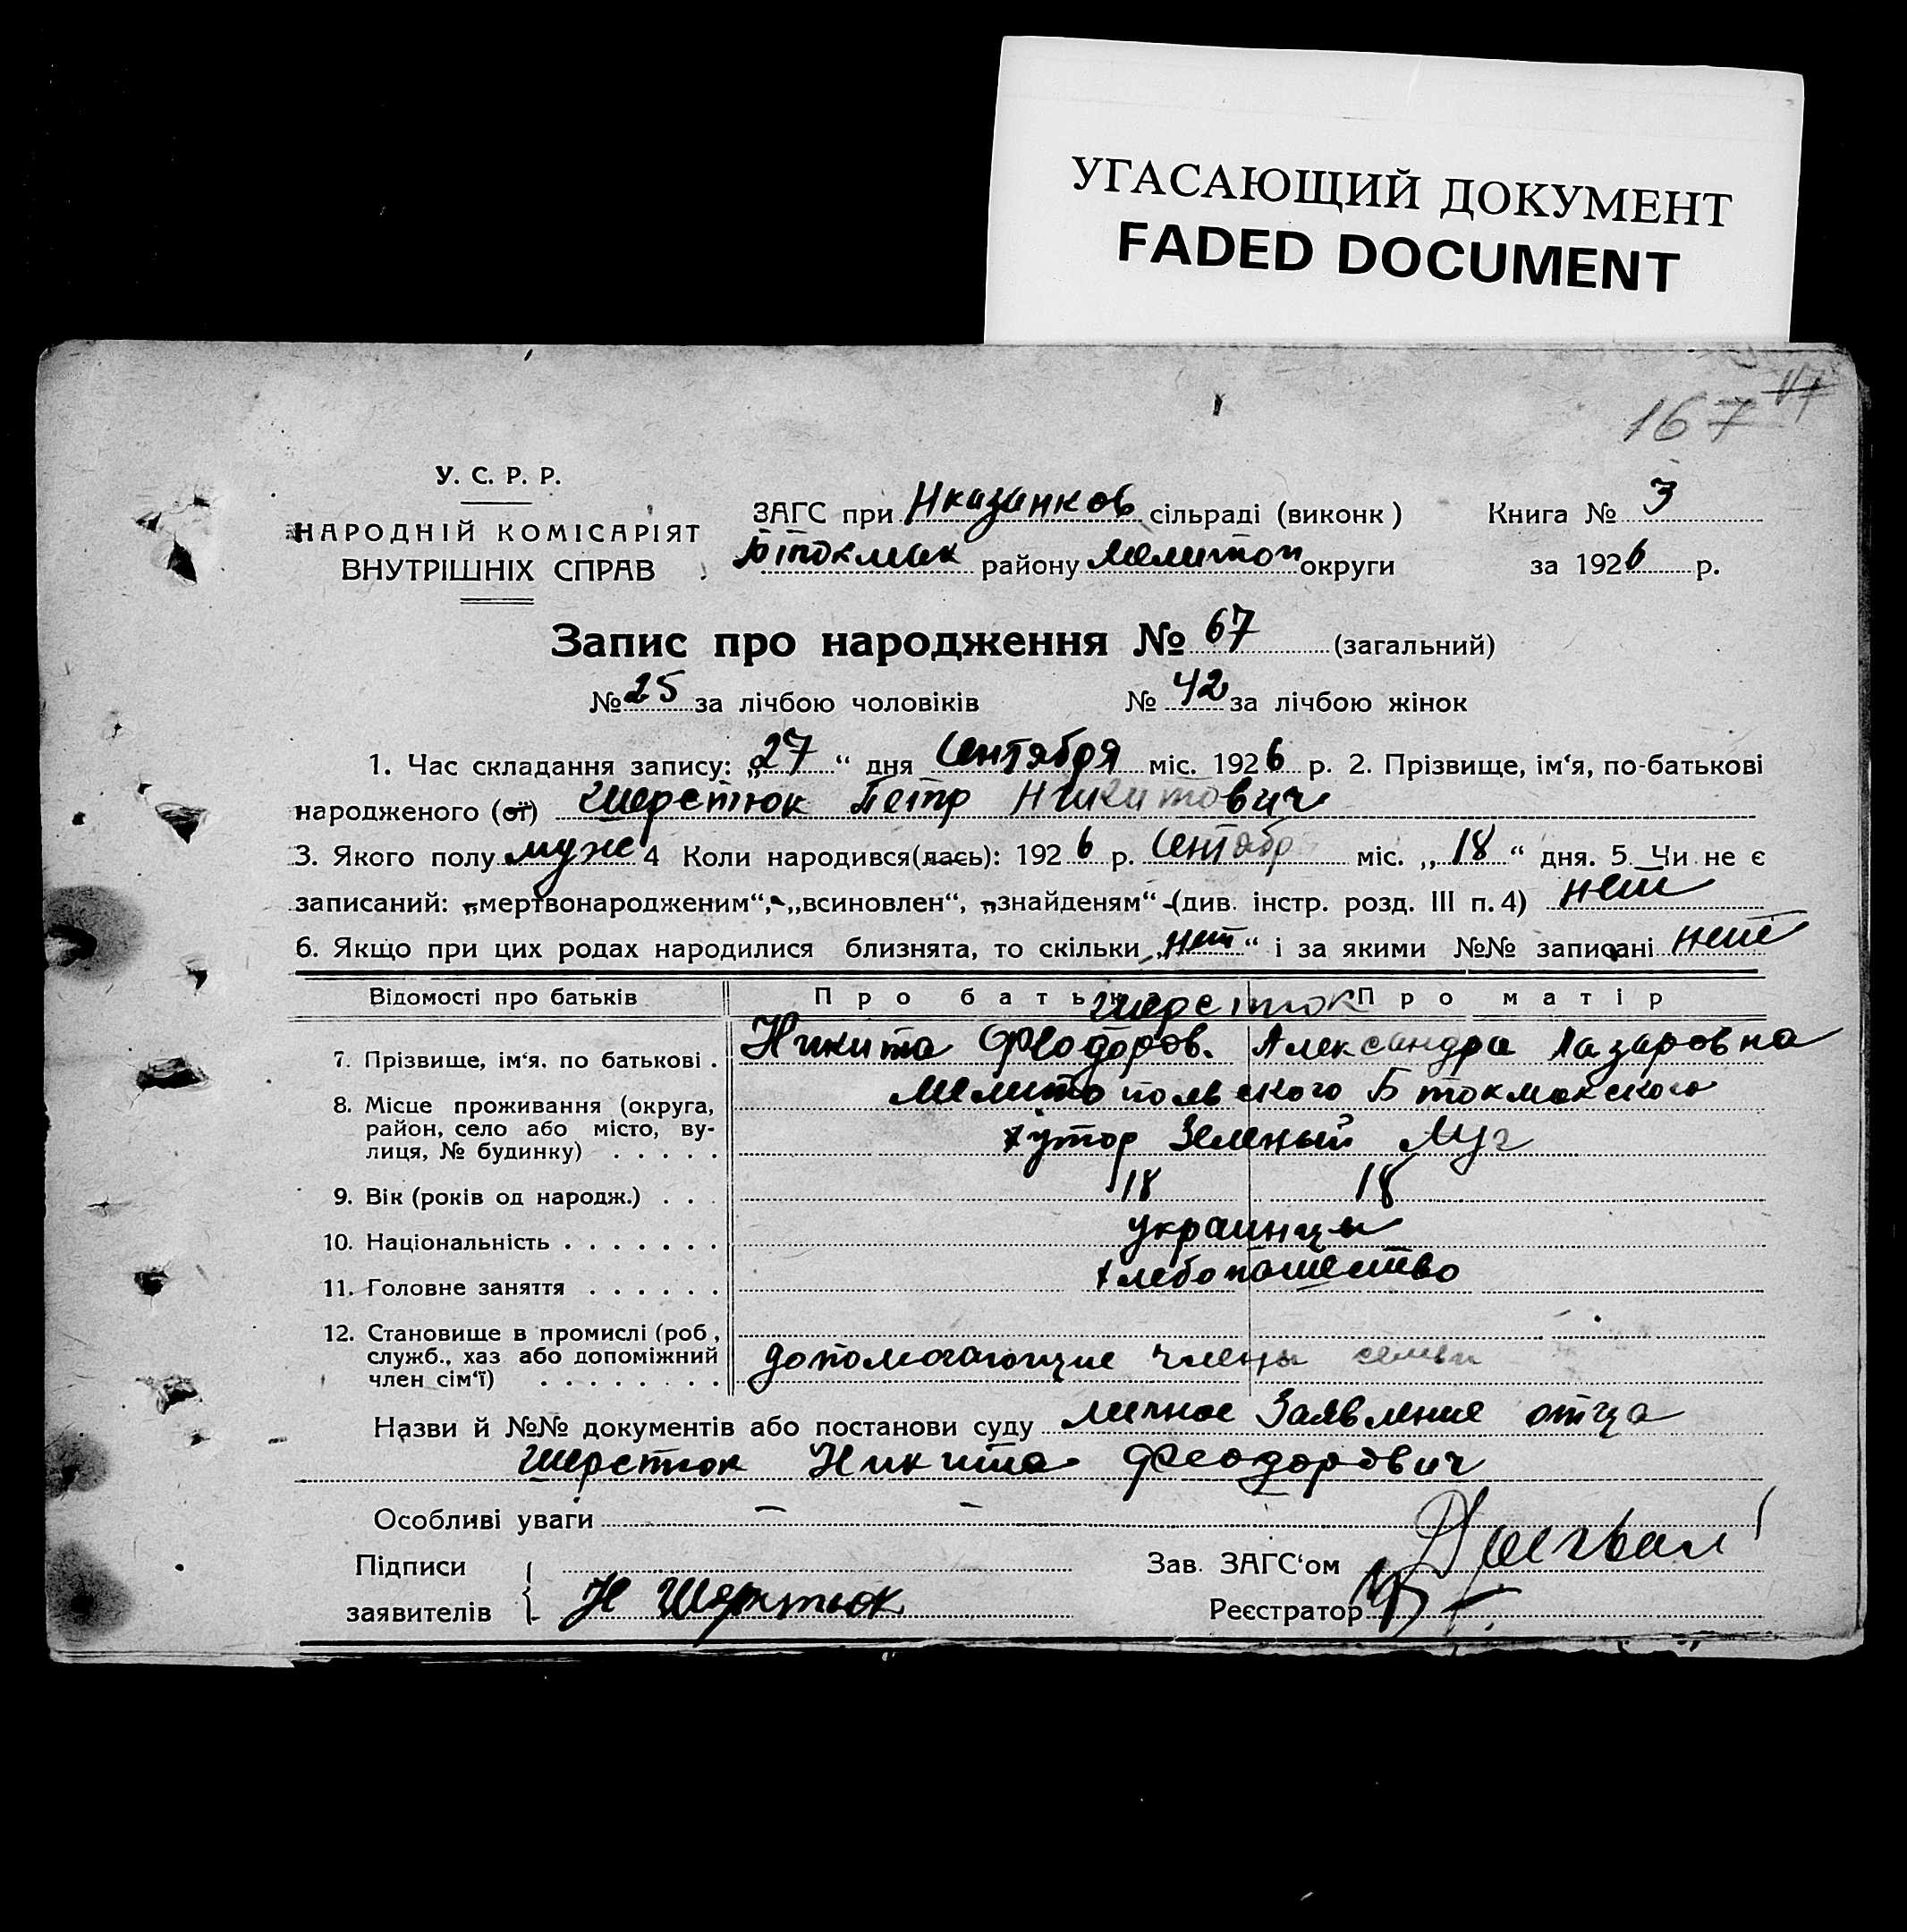 УГАСАЮЩИЙ ДОКУМЕНТ
FADED DOCUMENT
167 117
У. С. Р. Р.
НАРОДНІЙ КОМІСАРІЯТ
ВНУТРІШНІХ СПРАВ
ЗАГС при Нказанков сільраді (виконк)
Бтокмак району Мелитоп округи
Книга № 3
за 1926 р.
Запис про народження № 67 (загальний)
№ 25 за лічбою чоловіків № 42 за лічбою жінок
1. Час складання запису: „27“ дня Сентября міс. 1926 р. 2. Прізвище, ім‘я, по-батькові
народженого (ої) Шерстюк Петр Никитович
3. Якого полу муж 4 Коли народився(лась): 1926 р. Сентябр міс. „18“ дня. 5. Чи не є
записаний: „мертвонародженим“, „всиновлен“, „знайденям“ (див. інстр. розд. III п. 4) нет
6. Якщо при цих родах народилися близнята, то скільки „нет“ і за якими №№ записані нет
Відомості про батьків Про батька Про матір
Шерстюк
7. Прізвище, ім‘я, по батькові . Никита Феодоров. Александра Лазаровна
8. Місце проживання (округа, район, село або місто, вулиця, № будинку) . . . . . Мелитопольского Б токмакского
хутор Зеленый Луг
9. Вік (років од народж.) . . . 18 18
10. Національність . . . . . . . украинцы
11. Головне заняття . . . . . . хлебопашество
12. Становище в промислі (роб, служб., хаз або допоміжний член сім‘ї) . . . . . . . . допомогающие члены семьи
Назви й №№ документів або постанови суду личное Заявление отца
Шерстюк Никита Феодорович
Особливі уваги — —
Підписи
заявителів Н Шерстюк
Зав. ЗАГС‘ом
Реєстратор